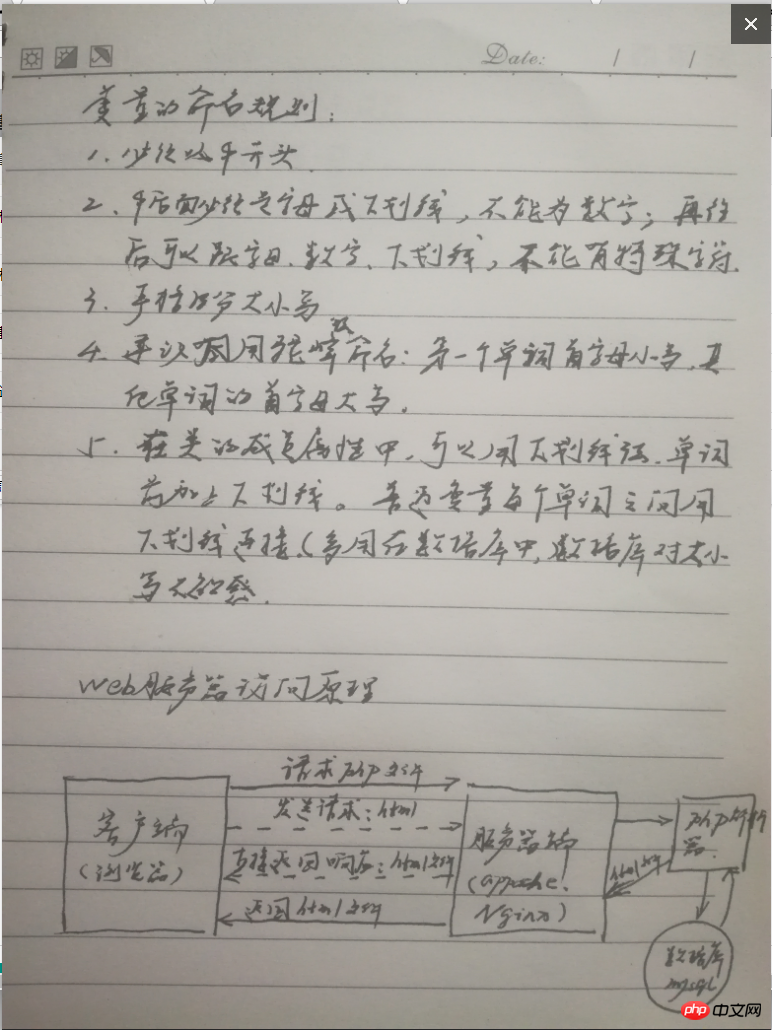 Date: / /
变量的命名规则:
1. 必须以$开头
2. $后面必须是字母或下划线,不能为数字;再往
后可以跟字母、数字、下划线,不能有特殊字符.
3. 严格区分大小写
4. 建议使用驼峰命名:第一个单词首字母小写,其
他单词的首字母大写。
5. 在类的成员属性中,可以用下划线法.单词
前加上下划线。普通变量每个单词之间用
下划线连接(多用在数据库中,数据库对大小
写不敏感.
web服务器访问原理
请求php文件
发送请求:html
直接返回响应:html文件
返回html文件
客户端
(浏览器)
服务器端
(apache、
Nginx)
php解析
器
html文件
数据库
mysql
php 中文网